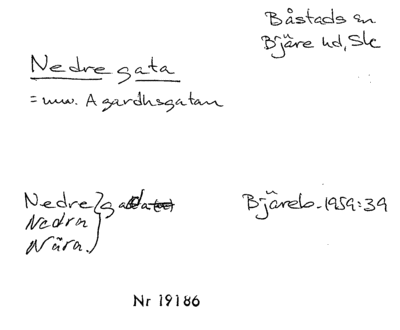 Båstads sn
Bjäre hd, Skc
Nedre gata
= nuv. Agardhsgatan
Nedre } gada
Nedra
Nära.
Bjäreb. 1959:39
Nr 19186